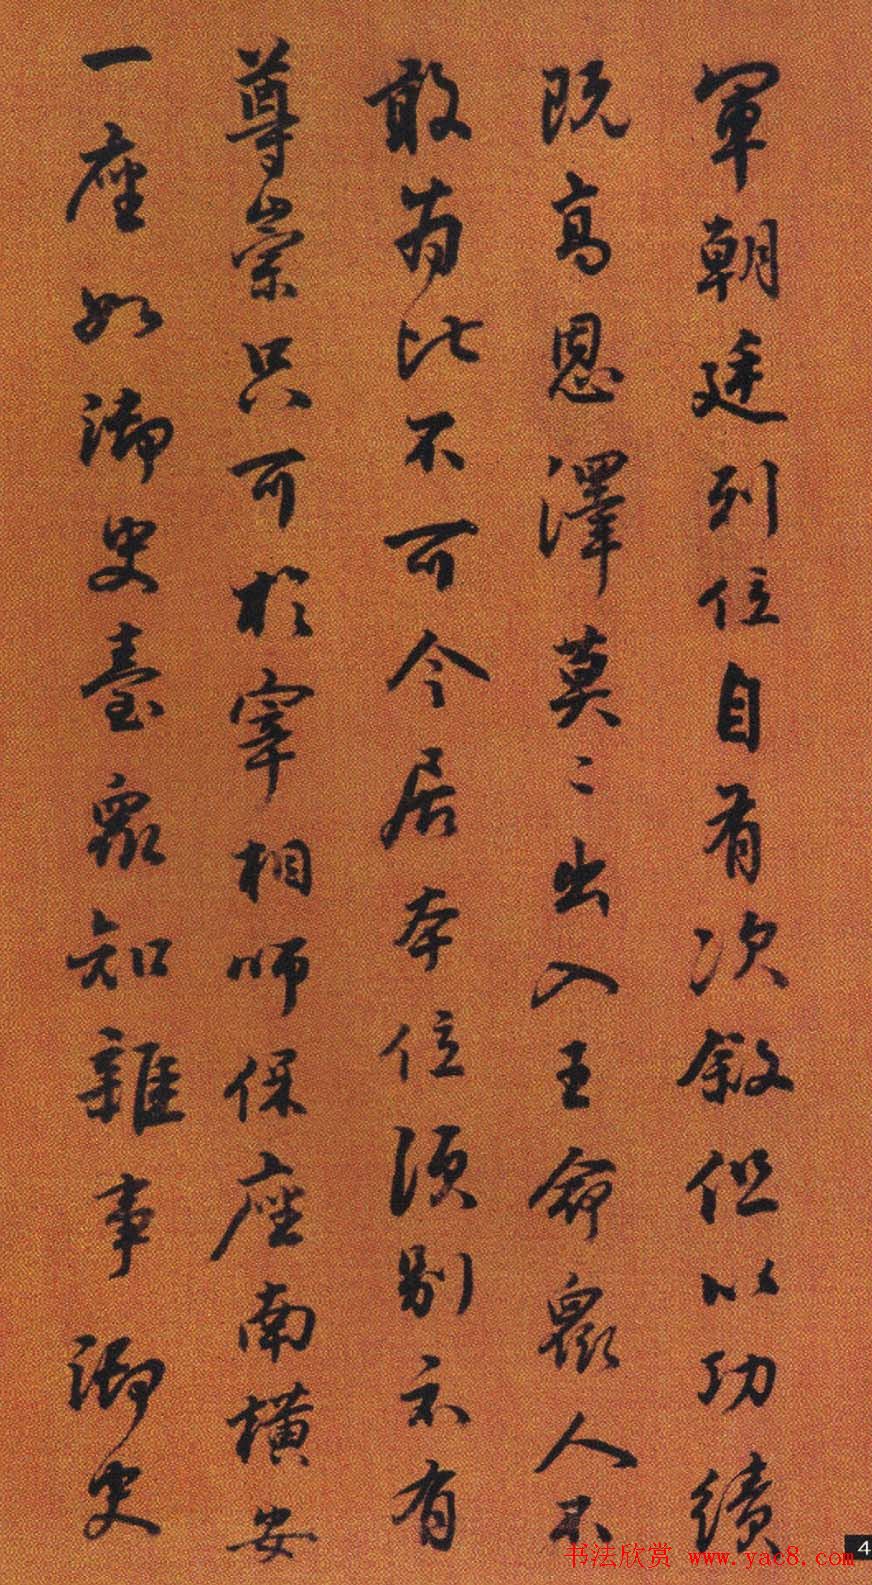 軍朝廷列位自有次敘但以功績
既高恩澤莫二出入王命衆人不
敢為比不可令居本位須別示有
尊崇只可於宰相師保座南橫安
一座如御史臺衆知雜事御史
书法欣赏 www.yac8.com
4